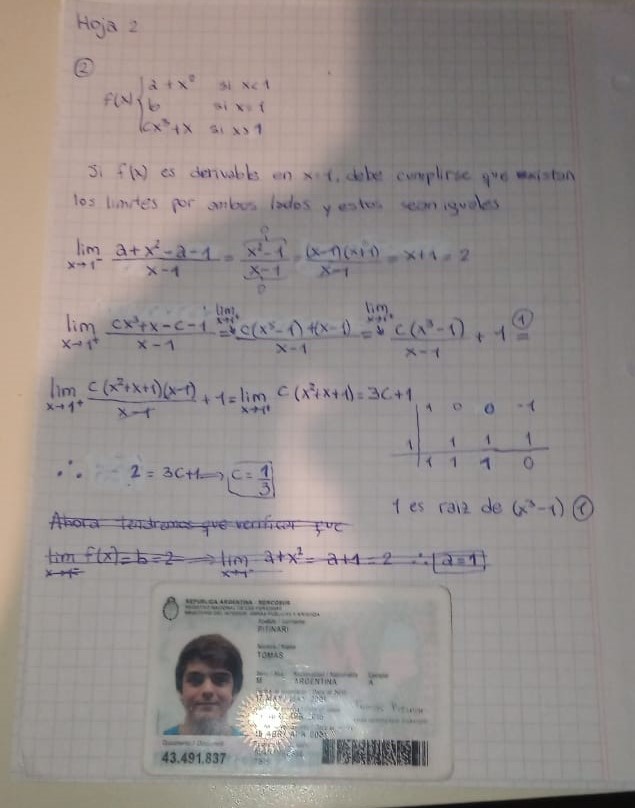 Hoja 2
②
f(x) { a + x² si x<1
b si x=1
cx³+x si x>1
Si f(x) es derivable en x=1, debe cumplirse que existan
los limites por ambos lados y estos sean iguales
lim x→1⁻ (a+x²-a-1)/(x-1) = (x²-1)/(x-1) = (x-1)(x+1)/(x-1) = x+1 = 2
0
0
lim x→1⁺ (cx³+x-c-1)/(x-1) = lim x→1⁺ (c(x³-1)+(x-1))/(x-1) = lim x→1⁺ c(x³-1)/(x-1) + 1 ① =
lim x→1⁺ c(x²+x+1)(x-1)/(x-1) + 1 = lim x→1⁺ c(x²+x+1) = 3c+1
1 0 0 -1
1 1 1 1
1 1 1 0
∴ 2 = 3c+1 ⇒ c = 1/3
1 es raiz de (x³-1) ①
Ahora tendremos que verificar que
lim x→1⁻ f(x) = b = 2 ⇒ lim x→1⁻ a+x² = a+1 = 2 ∴ a=1
REPUBLICA ARGENTINA - MERCOSUR
REGISTRO NACIONAL DE LAS PERSONAS
MINISTERIO DEL INTERIOR, OBRAS PUBLICAS Y VIVIENDA
Apellido / Surname
PITINARI
Nombre / Name
TOMAS
Sexo / Sex Nacionalidad / Nationality Ejemplar
M ARGENTINA A
Documento / Document
43.491.837